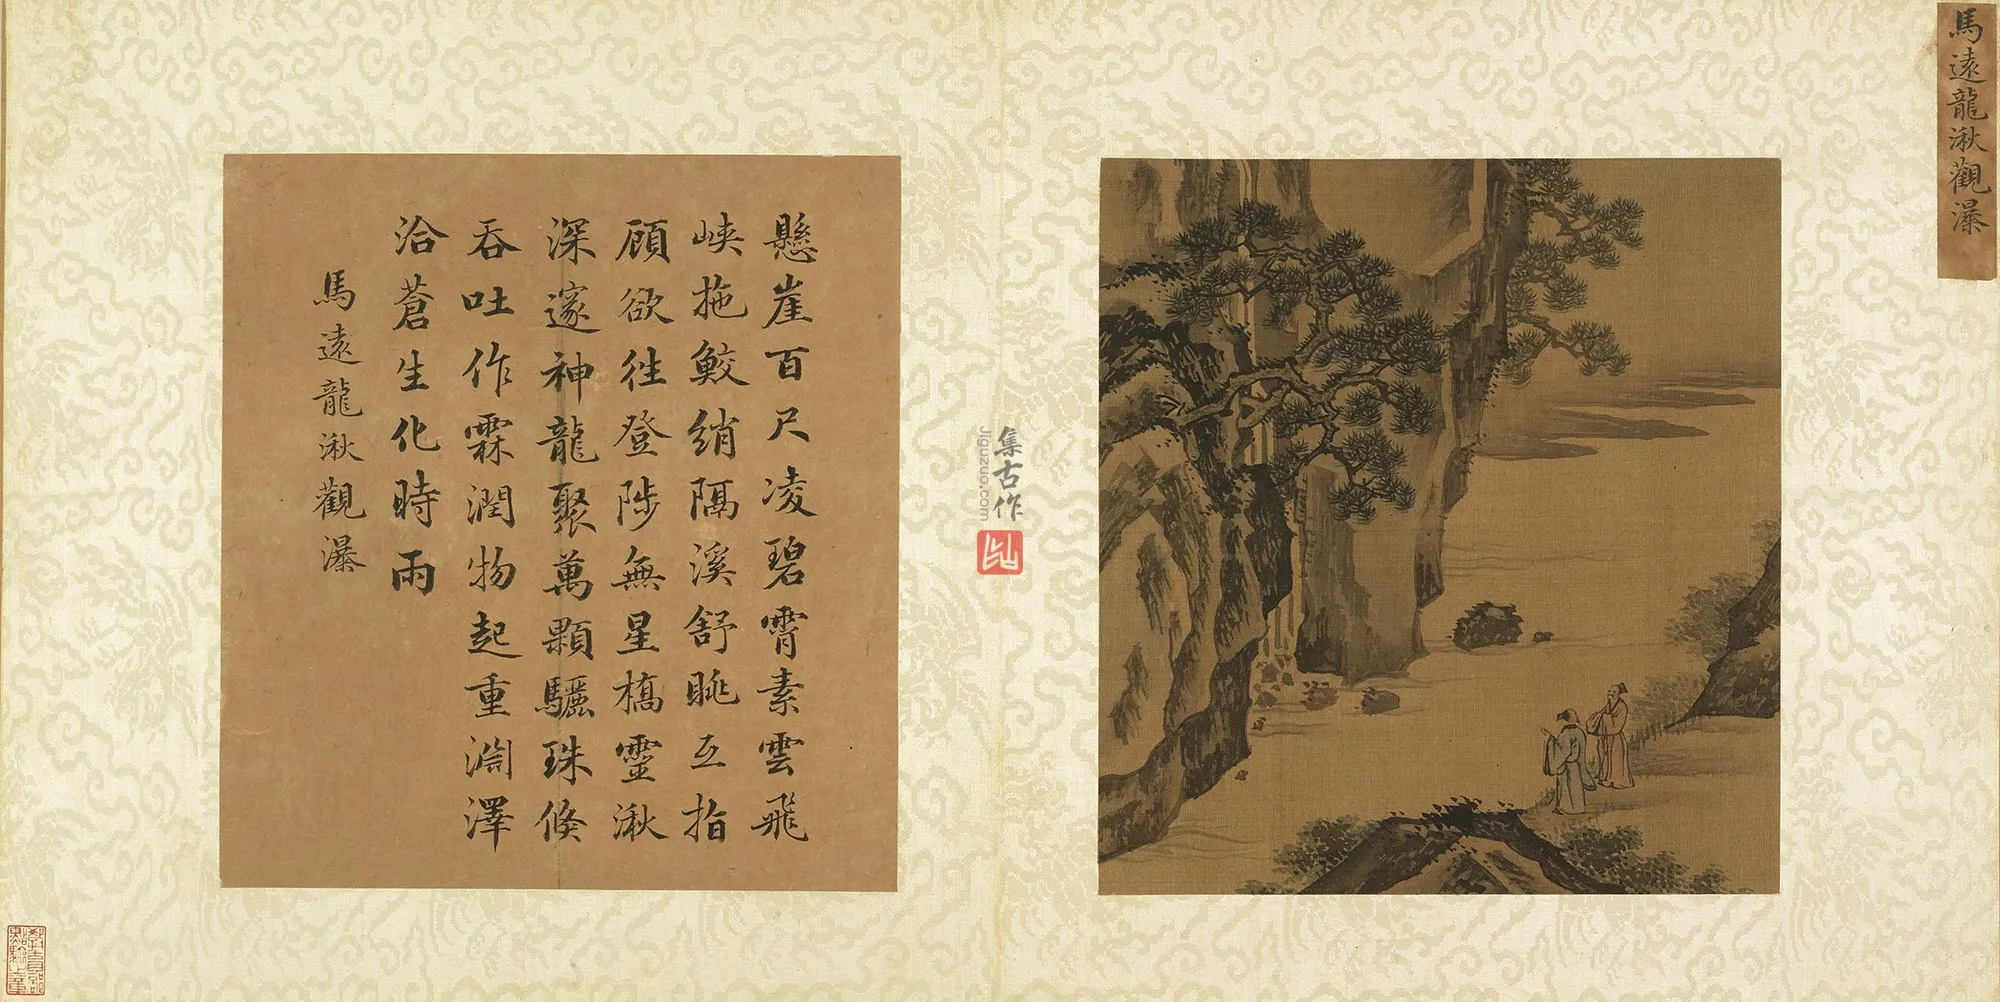 馬遠龍湫觀瀑
集古作
jiguzuo.com
懸崖百尺凌碧霄素雲飛
峽拖鮫綃隔溪舒眺互指
顧欲往登陟無星橋靈湫
深邃神龍聚萬顆驪珠倏
吞吐作霖潤物起重淵澤
洽蒼生化時雨
馬遠龍湫觀瀑
教育部
點驗之章